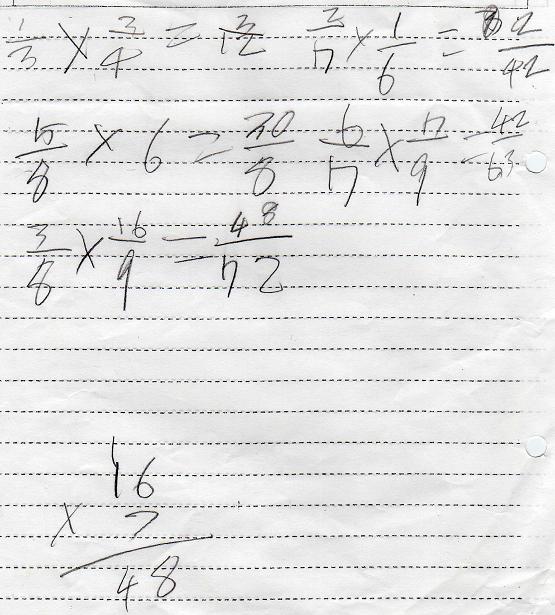 1/3 × 3/4 = 3/12 3/7 × 1/6 = 2/42
5/8 × 6 = 30/8 6/7 × 7/9 = 42/63
3/8 × 16/9 = 48/72
16
× 7
48